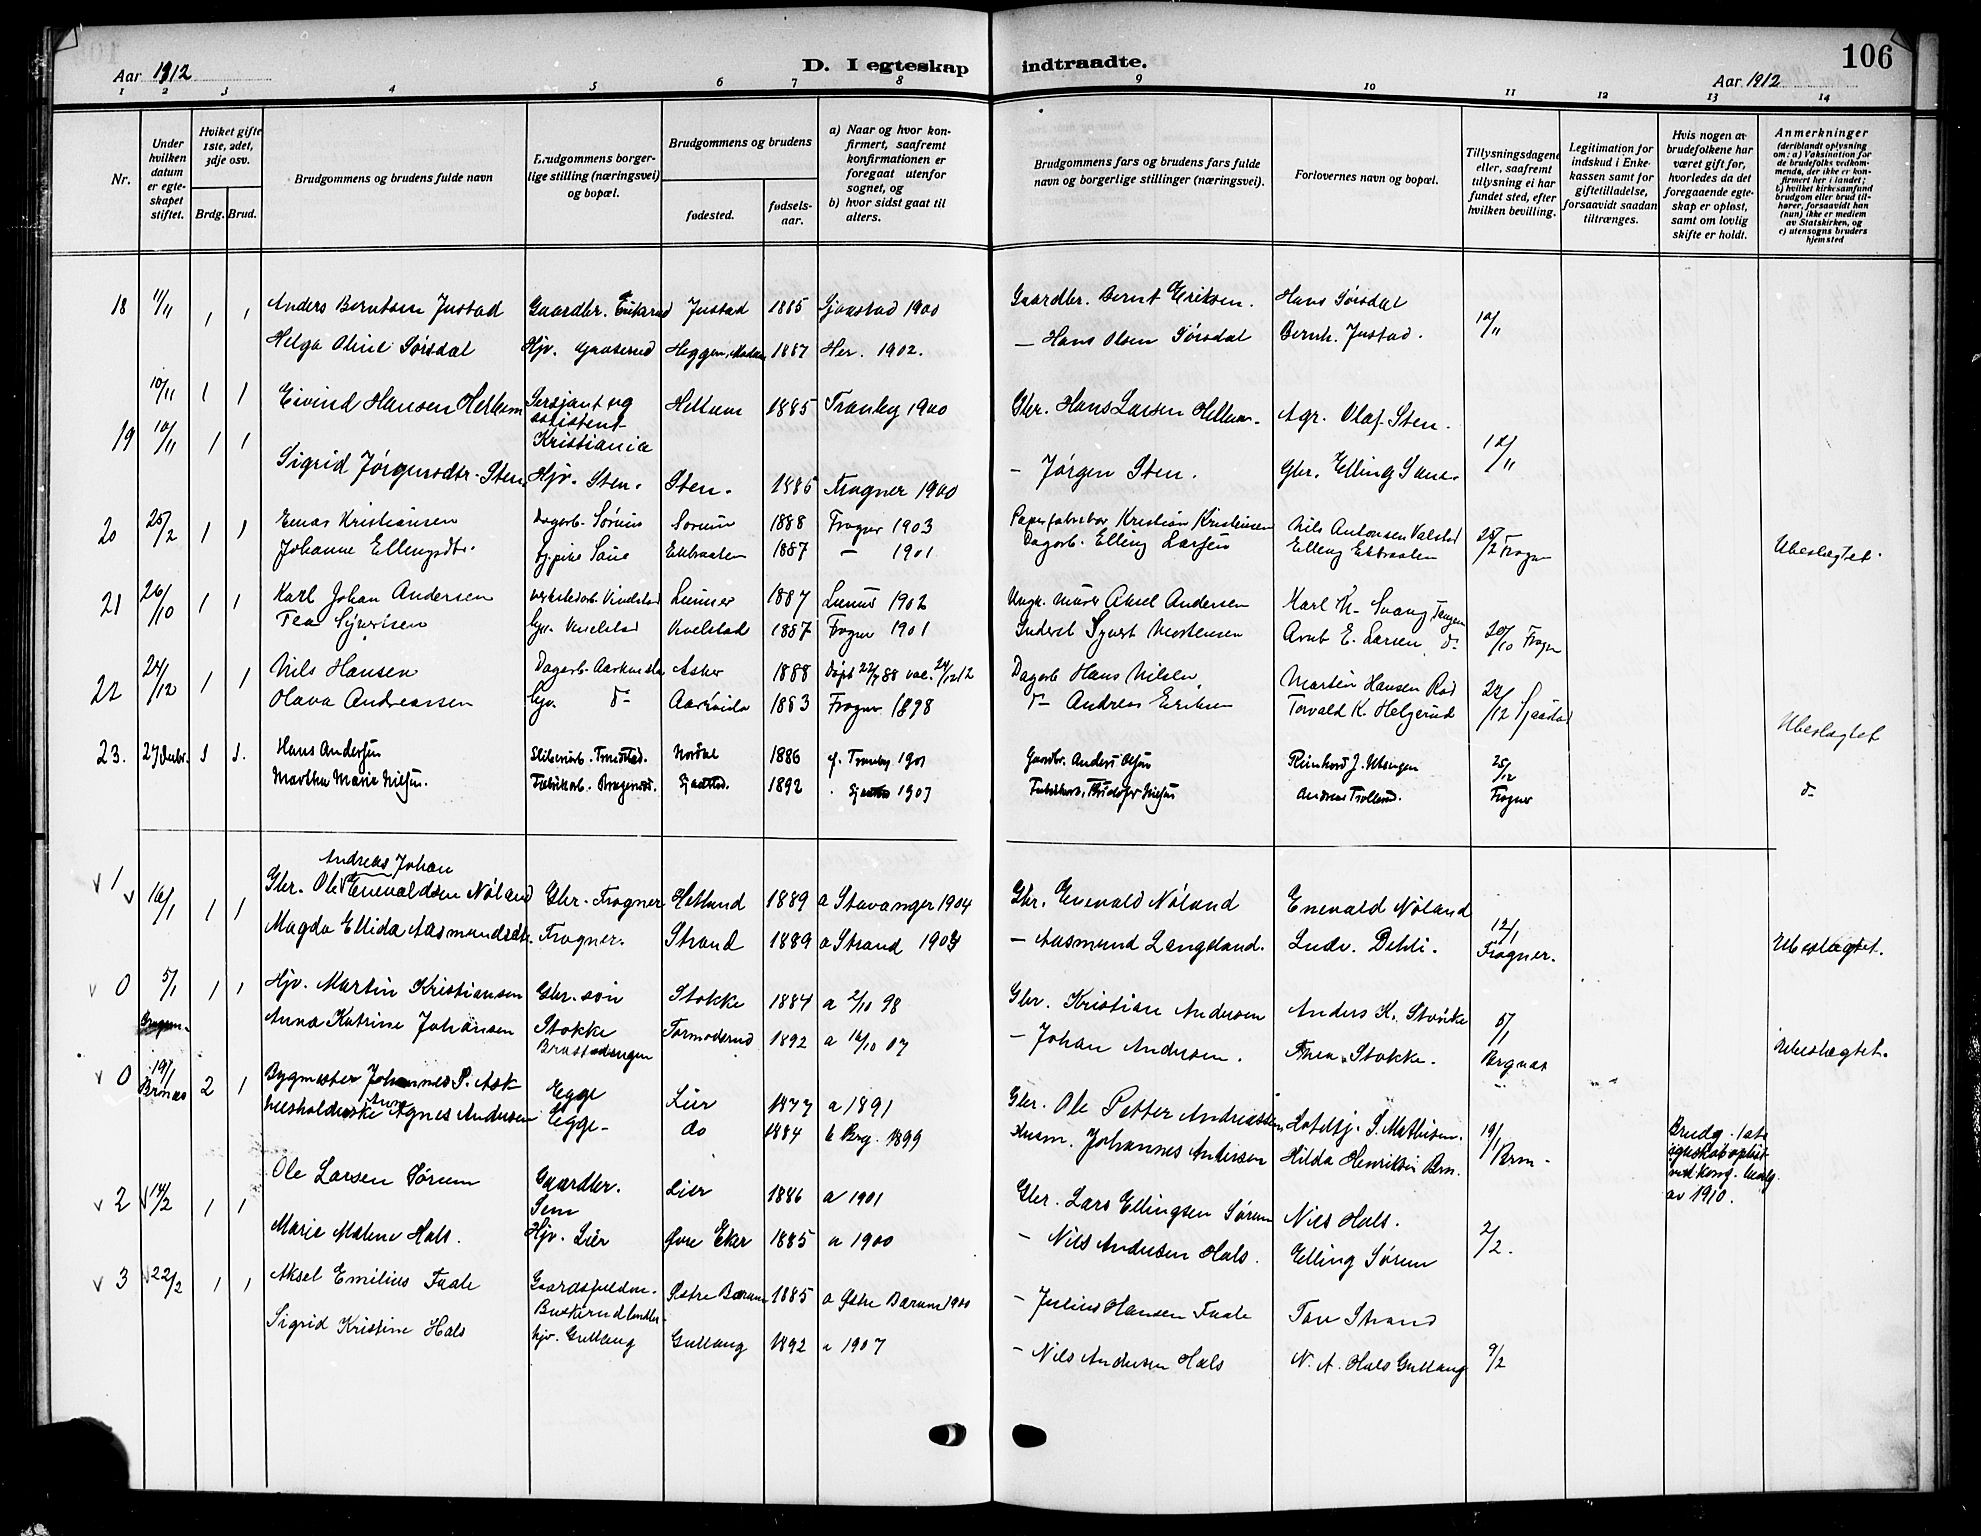 Aar 1912 D. I egteskap indtraadte. Aar 1912 106
1 2 3 4 5 6 7 8 9 10 11 12 13 14
Nr.
Under hvilken datum er egteskapet stiftet.
Hviket gifte 1ste, 2det, 3dje osv.
Brdg. Brud.
Brudgommens og brudens fulde navn
Brudgommens borgerlige stilling (næringsvei) og bopæl.
Brudgommens og brudens
fødested. fødselsaar.
a) Naar og hvor konfirmert, saafremt konfirmationen er foregaat utenfor sognet, og
b) hvor sidst gaat til alters.
Brudgommens fars og brudens fars fulde navn og borgerlige stillinger (næringsvei).
Forlovernes navn og bopæl.
Tillysningsdagene eller, saafremt tillysning ei har fundet sted, efter hvilken bevilling.
Legitimation for indskud i Enkekassen samt for giftetilladelse, forsaavidt saadan tiltrænges.
Hvis nogen av brudefolkene har været gift før, hvorledes da det foregaaende egteskap er opløst, samt om lovlig skifte er holdt.
Anmerkninger (deriblandt oplysning om: a) Vaksination for de brudefolks vedkommende, der ikke er konfirmert her i landet; b) hvilket kirkesamfund brudgom eller brud tilhører, forsaavidt han (hun) ikke er medlem av Statskirken, og c) utensogns bruders hjemsted
18 11/11 1 1 Anders Berntsen Justad Gaardbr. Justad 1885 Sjaastad 1900 Gaardbr. Bernt Eriksen. Hans Sørsdal 10/11
Helga Oline Sørsdal Hjv. Heggen, Modum 1887 Her. 1902. — Hans Olsen Sørsdal Bernh. Justad.
10/11 1 1 Eivind Hansen Hellum Sersjant og assistent Kristiania Hellum 1885 Tranby 1900 Gbr. Hans Larsen Hellum. Agr. Olaf Sten.
19 10/11 1 1 Sigrid Jørgensdtr. Sten. Hjv. Sten. Sten. 1885 Frogner 1900 — Jørgen Sten. Gbr. Elling 10/11
20 25/2 1 1 Einar Kristiansen Dagarb. Sørum Sørum 1888 Frogner 1903 Papirfabrikar. Kristian Kristiansen Nils Antonsen Valstad 25/2 Frogn
Johanne Ellingsdtr. Ekbraaten 1887 — 1901 Dagarb. Elling Larsen Elling Ekbraaten Ubeslægtet.
21 26/10 1 1 Karl Johan Andersen verkstedarb. Vivelstad 1887 1902 Aksel Andersen Karl K. Svang Tangen
Tea Syversen Vivelstad 1887 Frogner 1901 Syvert Mortensen Arnt E. Larsen do 20/10 Frogn
22 24/12 1 1 Nils Hansen Dagarb. Asker 1888 Døpt 22/7 88 24/12 12 Dagarb Hans Nilsen Martin Hansen Rød
Olava Andreassen do 1883 Frogner 1898 do Andreas Eriksen Torvald K. Helgerud 22/12 Sjaastad Ubeslægtet
23. 27 Decbr. 1 1. Hans Andersen Nordal 1886 Tranby 1901 Gaardbr. Anders Olsen Reinhard J. 25/12
Martha Marie Nilsen. Fabrikarb. Bragernes. Sjaastad. 1892 Sjaastad 1907 Nilsen Andreas Trolland. Frogner do
Andreas Johan
v 1 v 16/1 1 1 Gbr. Ole Enevaldsen Nøland Gbr. Frogner Hetland 1889 a Stavanger 1904 Gbr. Enevald Nøland Enevald Nøland 12/1
Magda Ellida Aasmundsdtr. Frogner. Strand 1889 a Strand 1904 — Aasmund Langeland. Ludv. Dehli. Frogner. Ubeslægtet.
v 0 5/1 1 1 Hjv. Martin Kristiansen Gbr. søn Stokke 1884 a 2/10 98 Gbr. Kristian Andersen Anders K. Stokke 5/1
Anna Katrine Johansen Stokke Tormodsrud 1892 a 16/10 07 — Johan Andersen. Thea Stokke. Ubeslægtet.
v 0 19/1 2 1 Bygmester Johannes P. Ask Egge Lier 1877 a 1891 Gbr. Ole Petter Andreassen S. Mathisen. 19/1
Agnes Andersen Egge. do 1884 1899 Husm. Johannes Andersen Hilda Henriksen Brn. Brn.
Brudg. 1ste egteskab opløst ved kong. bevilg. av 1910.
v 2 v 14/2 1 1 Ole Larsen Sørum Gaardbr. Sem Lier 1886 a 1901 Gbr. Lars Ellingsen Sørum Nils Hals. 2/2.
Marie Malene Hals. Hjv. Lier Øvre Eker 1885 a 1900 — Nils Andersen Hals. Elling Sørum
v 3 v 22/2 1 1 Aksel Emilius Faale Østre Bærum 1885 a Østre Bærum 1900 — Julius Hansen Faale Tov Strand
Sigrid Kristine Hals hjv. Gullaug Gullaug 1892 a 1907 — Nils Andersen Hals N. A. Hals Gullaug 9/2